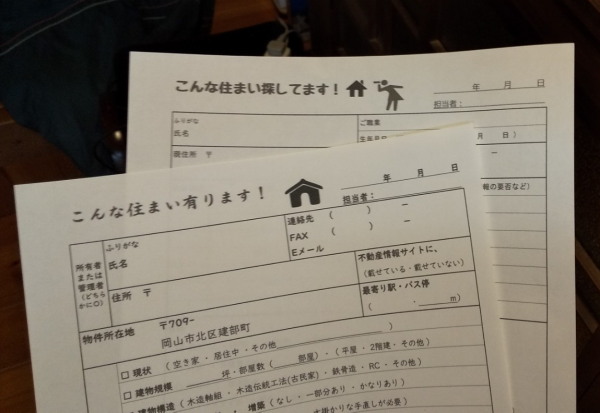 こんな住まい探してます！
年 月 日
担当者：
ふりがな
氏名
ご職業
現住所 〒
月 日 ）
－
報の要否など）
こんな住まい有ります！
年 月 日
担当者：
所有者
または
管理者
（どちら
かに○）
ふりがな
氏名
連絡先 （ ） －
FAX （ ） －
Eメール
住所 〒
不動産情報サイトに、
（載せている・載せていない）
物件所在地
〒709-
岡山市北区建部町
最寄り駅・バス停
（ ・ m）
□ 現状 （ 空き家 ・ 居住中 ・その他 ）
□ 建物規模 坪・部屋数（ 部屋）・（ 平屋 ・ 2階建 ・ その他 ）
建物構造（ 木造軸組 ・ 木造伝統工法(古民家) ・ 鉄骨造 ・ RC ・ その他 ）
増築（ なし ・ 一部分あり ・ かなりあり ）
大掛かりな手直しが必要 ）